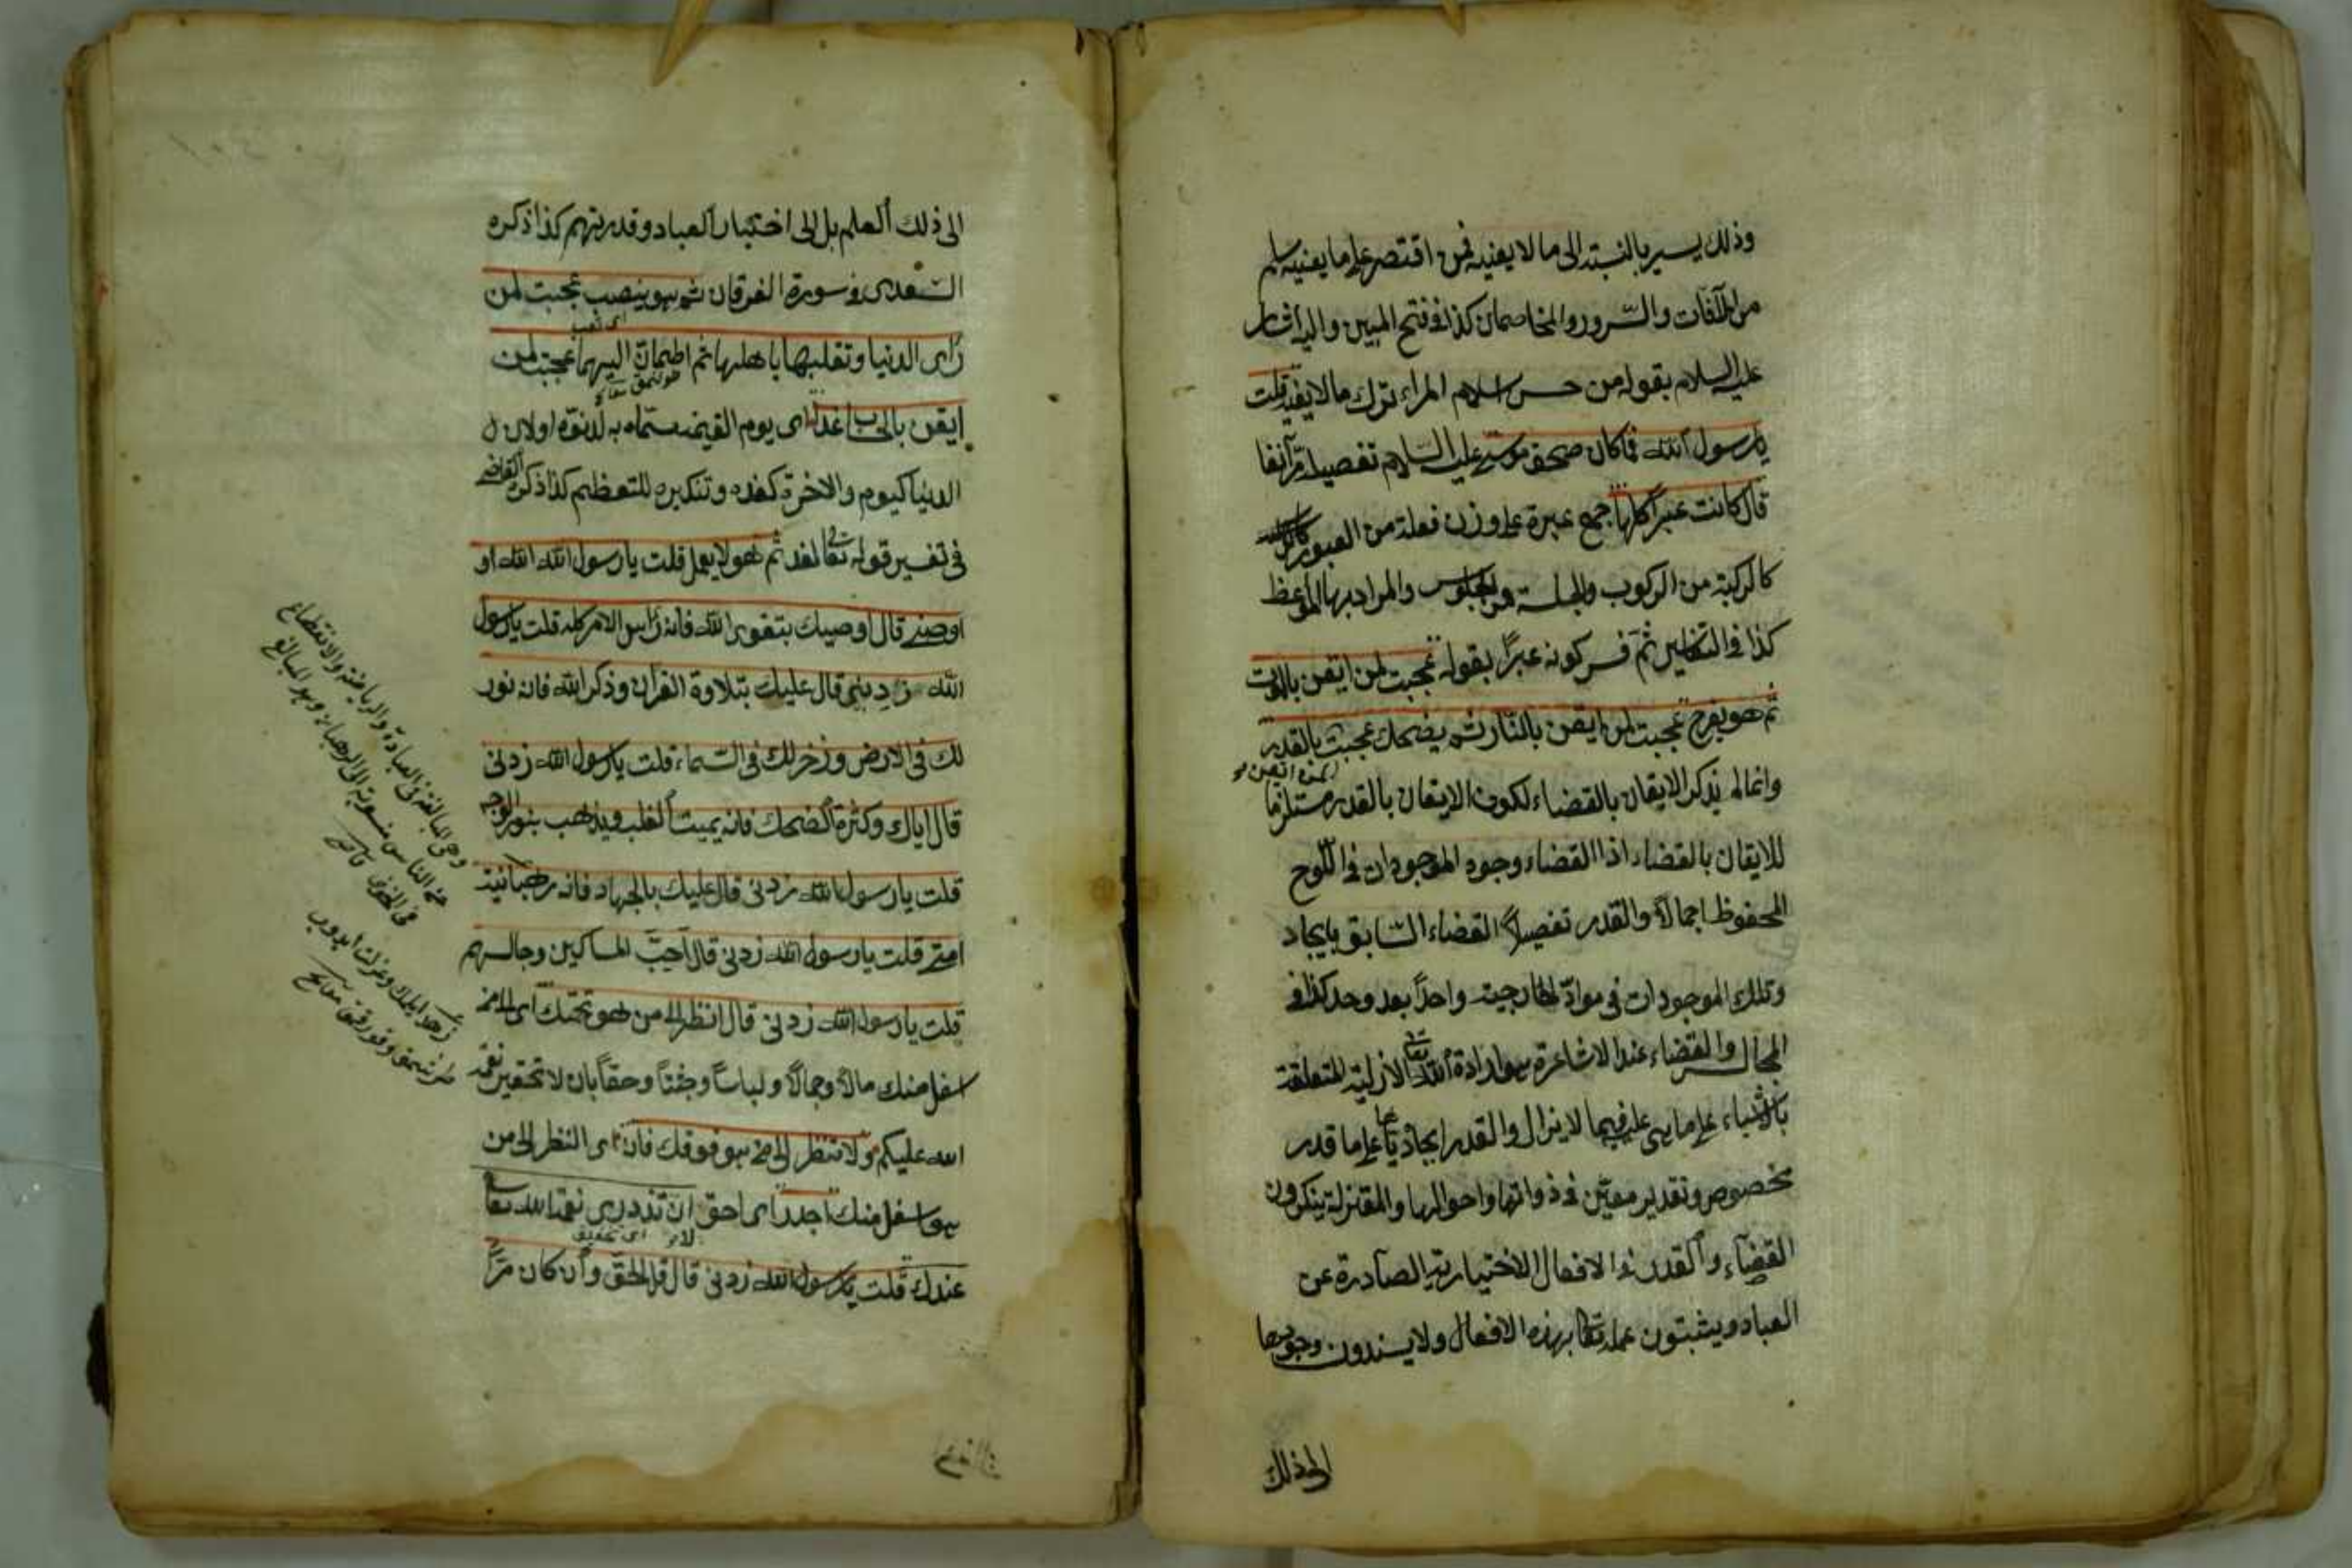 وذلك يسير بالنسبة الى ما لا يعنيه فمن اقتصر على ما يعنيه سلم
من الآفات والشرور والمخاصمات كذا فى فتح المبين واليه اشار
عليه السلام بقوله من حسن اسلام المرء ترك ما لا يعنيه قلت
يا رسول الله فما كان صحف موسى عليه السلام تفصيله مر آنفا
قال كانت عبراً كلها جمع عبرة على وزن فعلة من العبور
كالركبة من الركوب والجلسة من الجلوس والمراد بها المواعظ
كذا فى ثم فسر كونه عبراً بقوله عجبت لمن ايقن بالموت
ثم هو يفرح عجبت لمن ايقن بالنار ثم يضحك عجبت بالقدر
وانما لم يذكر الايقان بالقضاء لكون الايقان بالقدر مستلزما
للايقان بالقضاء اذ القضاء وجود الموجودات فى اللوح
المحفوظ اجمالاً والقدر تفصيل القضاء السابق بايجاد
وتلك الموجودات فى مواد الخارجية واحداً بعد وحد كذا فى
المجالس والقضاء عند الاشاعرة هو ارادة الله تعالى الازلية المتعلقة
بالاشياء على ما هى عليه فيما لا يزال والقدر ايجاده اياها على ما قدر
مخصوص وتقدير معين فى ذواتها واحوالها والمعتزلة ينكرون
القضاء والقدر فى الافعال الاختيارية الصادرة عن
العباد ويثبتون علمه تعالى بهذه الافعال ولا يسندون وجودها
الى ذلك
الى ذلك العلم بل الى اختيار العباد وقدرتهم كذا ذكره
السعدى فى سورة الفرقان ثم هو ينصب عجبت لمن
اى تعب
رأى الدنيا وتقلبها باهلها ثم اطمأن اليها عجبت لمن
ايقن بالحساب غداً اى يوم القيمة سماه به لدنوه او لان
الدنيا كيوم والآخرة كغده وتنكيره للتعظيم كذا ذكره القاضى
فى تفسير قوله تعالى لغد ثم هو لا يعمل قلت يا رسول الله
اوصنى قال اوصيك بتقوى الله فانه رأس الامر كله قلت يا رسول
الله زدنى قال عليك بتلاوة القرآن وذكر الله فانه نور
لك فى الارض وذخر لك فى السماء قلت يا رسول الله زدنى
قال اياك وكثرة الضحك فانه يميت القلب ويذهب بنور الوجه
قلت يا رسول الله زدنى قال عليك بالجهاد فانه رهبانية
امتى قلت يا رسول الله زدنى قال احب المساكين وجالسهم
قلت يا رسول الله زدنى قال انظر الى من هو تحتك اى الى من
اسفل منك مالاً وجمالاً ولباساً وحقاً بان لا تحقرن نعمة
الله عليكم ولا تنظر الى من هو فوقك فانه اى النظر الى من
هو اسفل منك اجدر اى احق ان تزدرى نعمة الله تعالى
عندك قلت يا رسول الله زدنى قال قل الحق وان كان مراً
وهى المبالغة فى العبادة والرياضة والانقطاع
عن الناس منسوبة الى الرهبان وهو المبالغ
فى الخوف